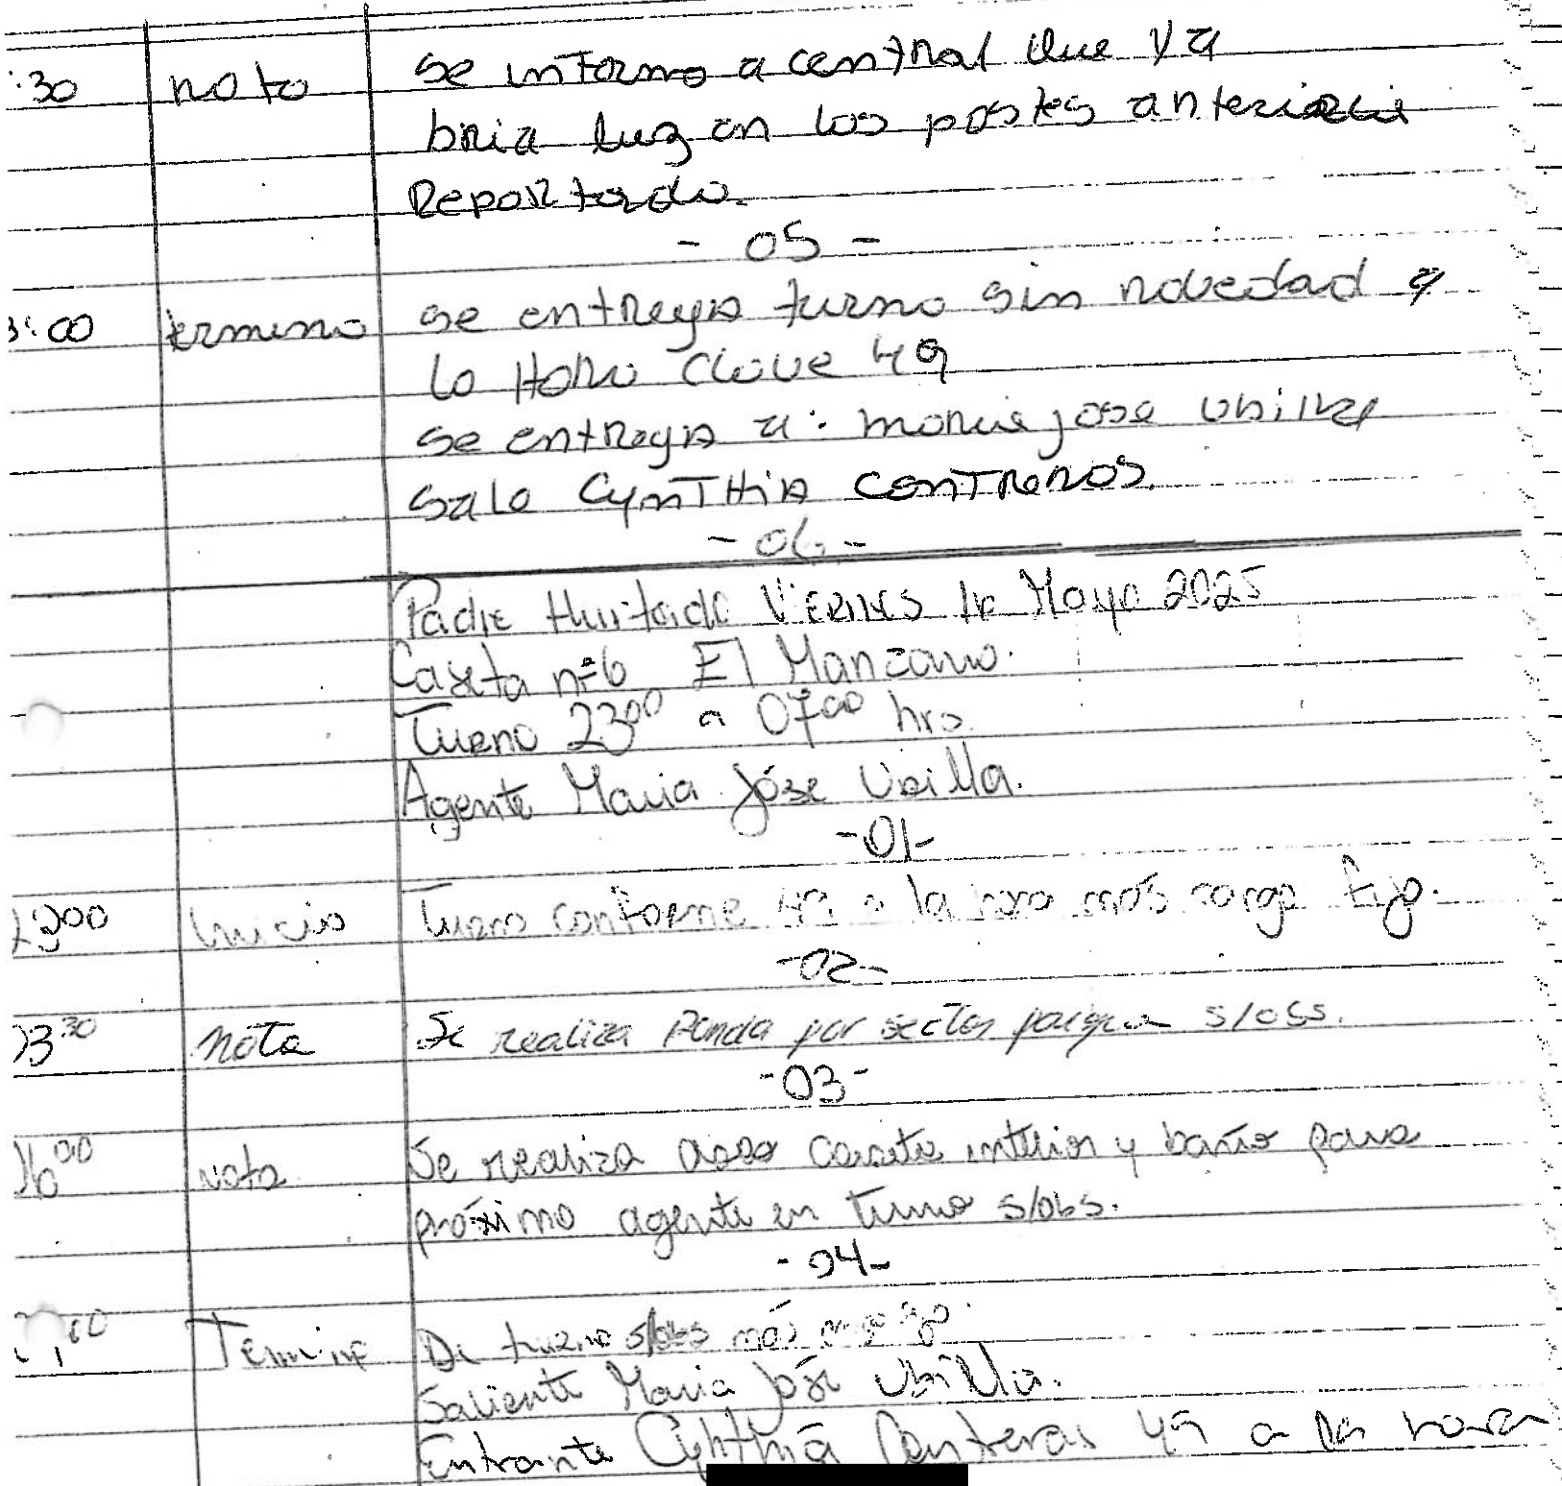 :30 noto se informo a central que ya
bria luz en los postes anterior
Reportado.
- 05 -
3:00 termino se entrega turno sin novedad a
la Hora clave 49
se entrega a: maria jose ubilla
sale CynTHia CONTRERAS.
- 06 -
Padre Hurtado Viernes 16 Mayo 2025
Caseta n=6 El Manzano.
Turno 23⁰⁰ a 07⁰⁰ hrs.
Agente Maria Jóse Ubilla.
-01-
2300 Inicio Turno conforme 49 a la hora más cargo fijo.
-02-
23³⁰ nota Se realiza Ronda por sector parque s/obs.
-03-
06⁰⁰ nota Se realiza aseo caseta interior y baño para
próximo agente en turno s/obs.
-04-
00 Termino De turno s/obs más cargo
Saliente Maria José Ubilla.
Entrante Cynthia Contreras 49 a la hora